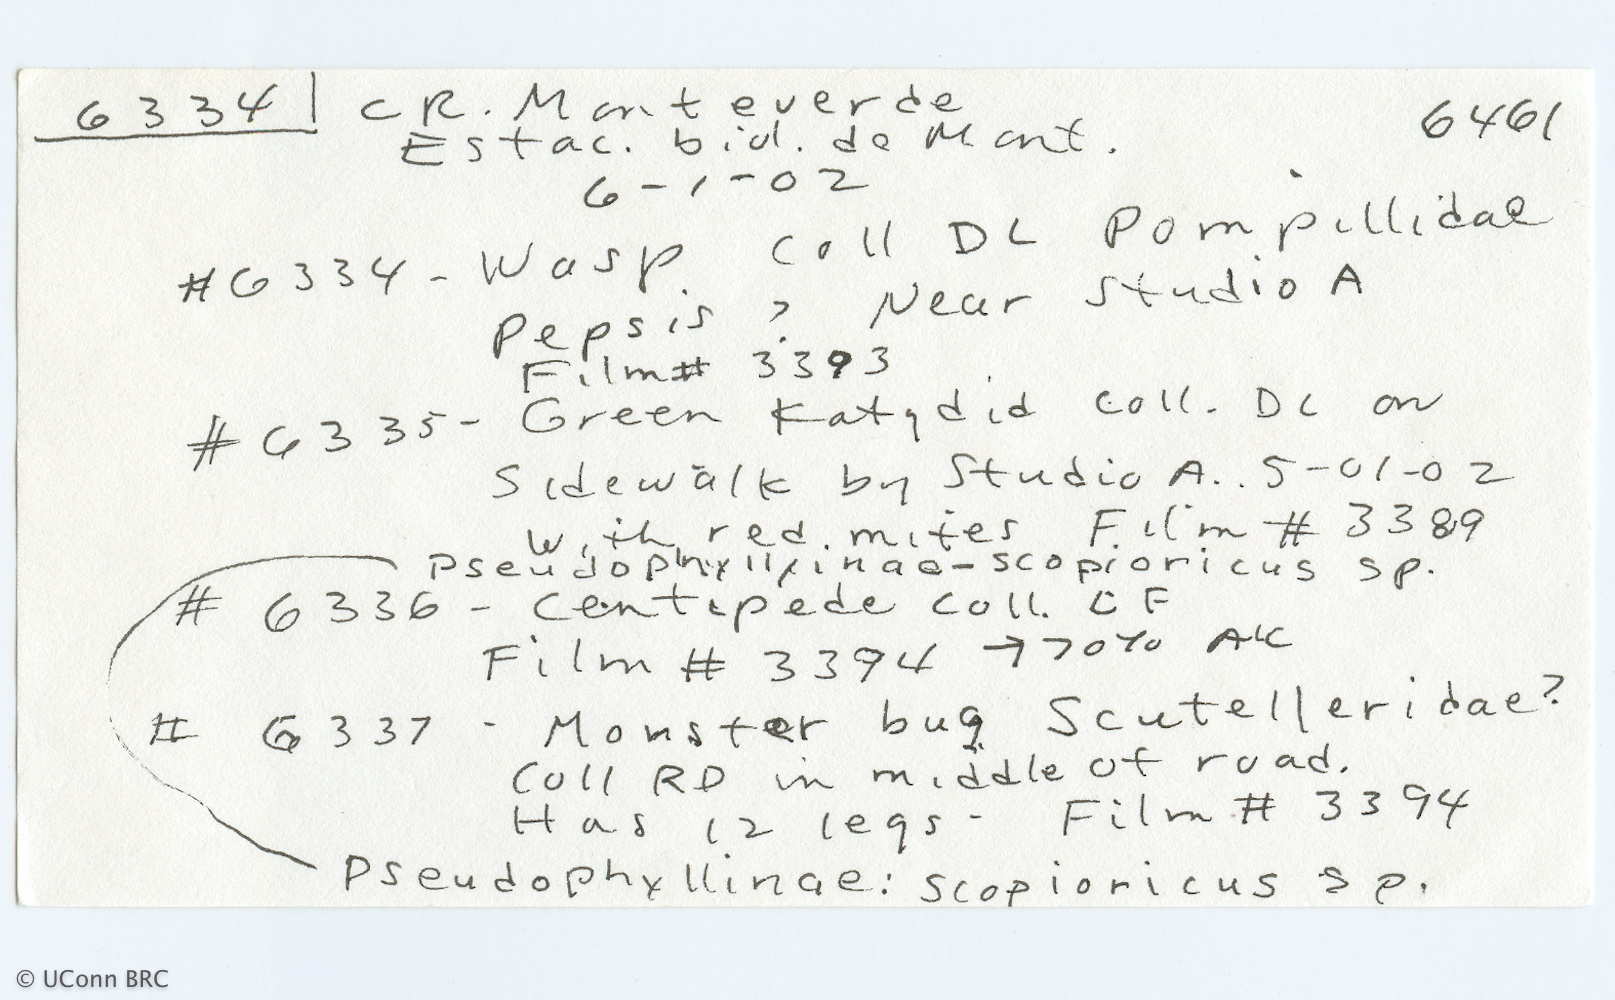 6334 CR. Monteverde 6461
Estac. biol. de Mont.
6-1-02
#6334 - Wasp coll DL Pompillidae
Pepsis? Near Studio A
Film# 3393
#6335- Green Katydid coll. DL on
Sidewalk by Studio A.. 5-01-02
with red mites Film # 3389
Pseudophyllinae-scopioricus sp.
# 6336 - Centipede coll. CF
Film # 3394 → 70% AlC
# 6337 - Monster bug Scutelleridae?
Coll RD in middle of road.
Has 12 legs - Film # 3394
Pseudophyllinae: scopioricus sp.
© UConn BRC